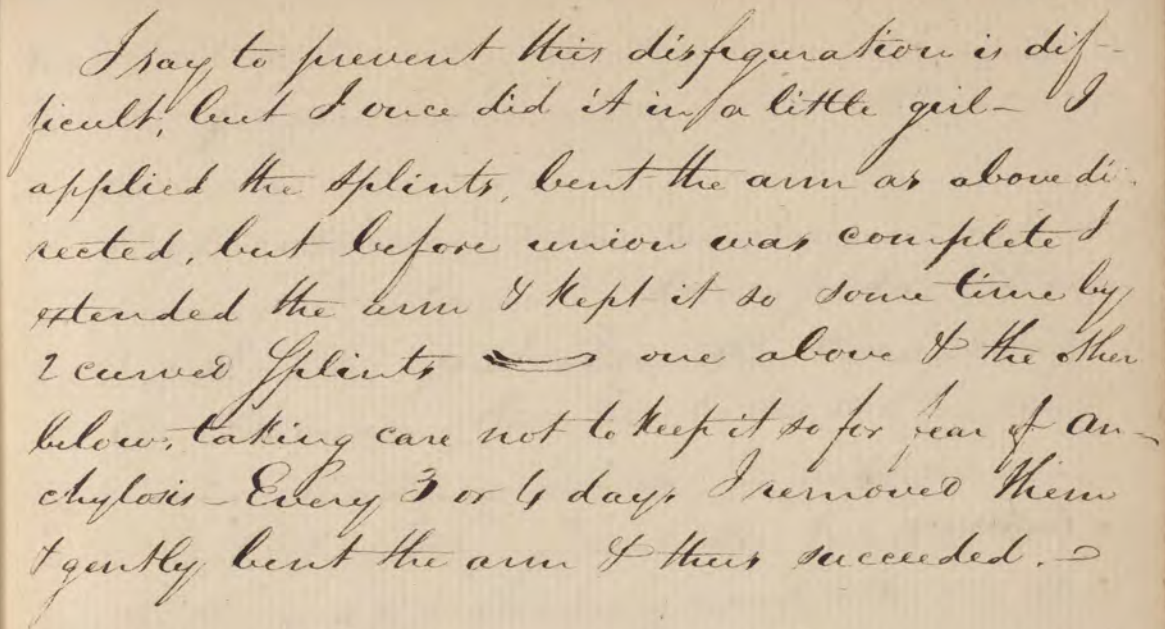 I say to prevent this disfiguration is dif-
ficult, but I once did it in a little girl - I
applied the splints, bent the arm as above di-
rected, but before union was complete I
extended the arm & kept it so some time by
2 curved Splints one above & the other
below, taking care not to keep it so for fear of an-
chylosis - Every 3 or 4 days I removed them
& gently bent the arm & thus succeeded. -